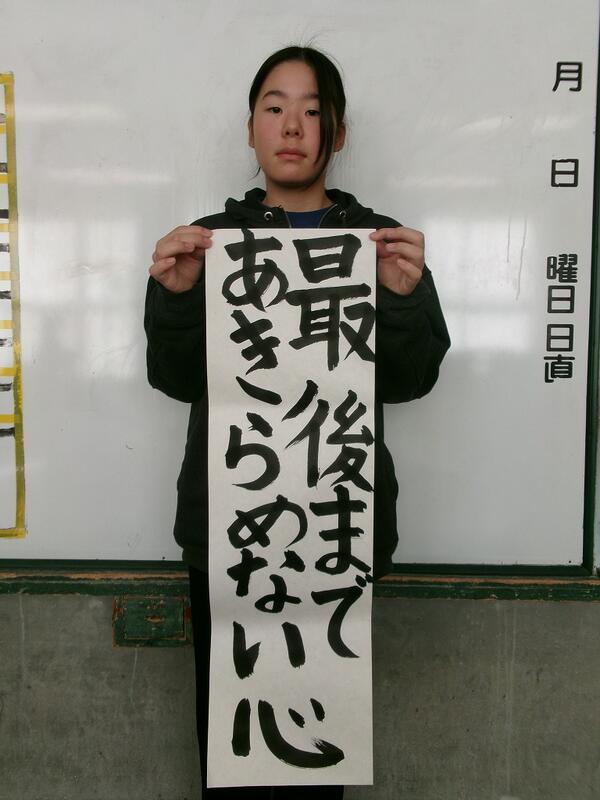 最後まで
あきらめない心
月
日
曜日
日直